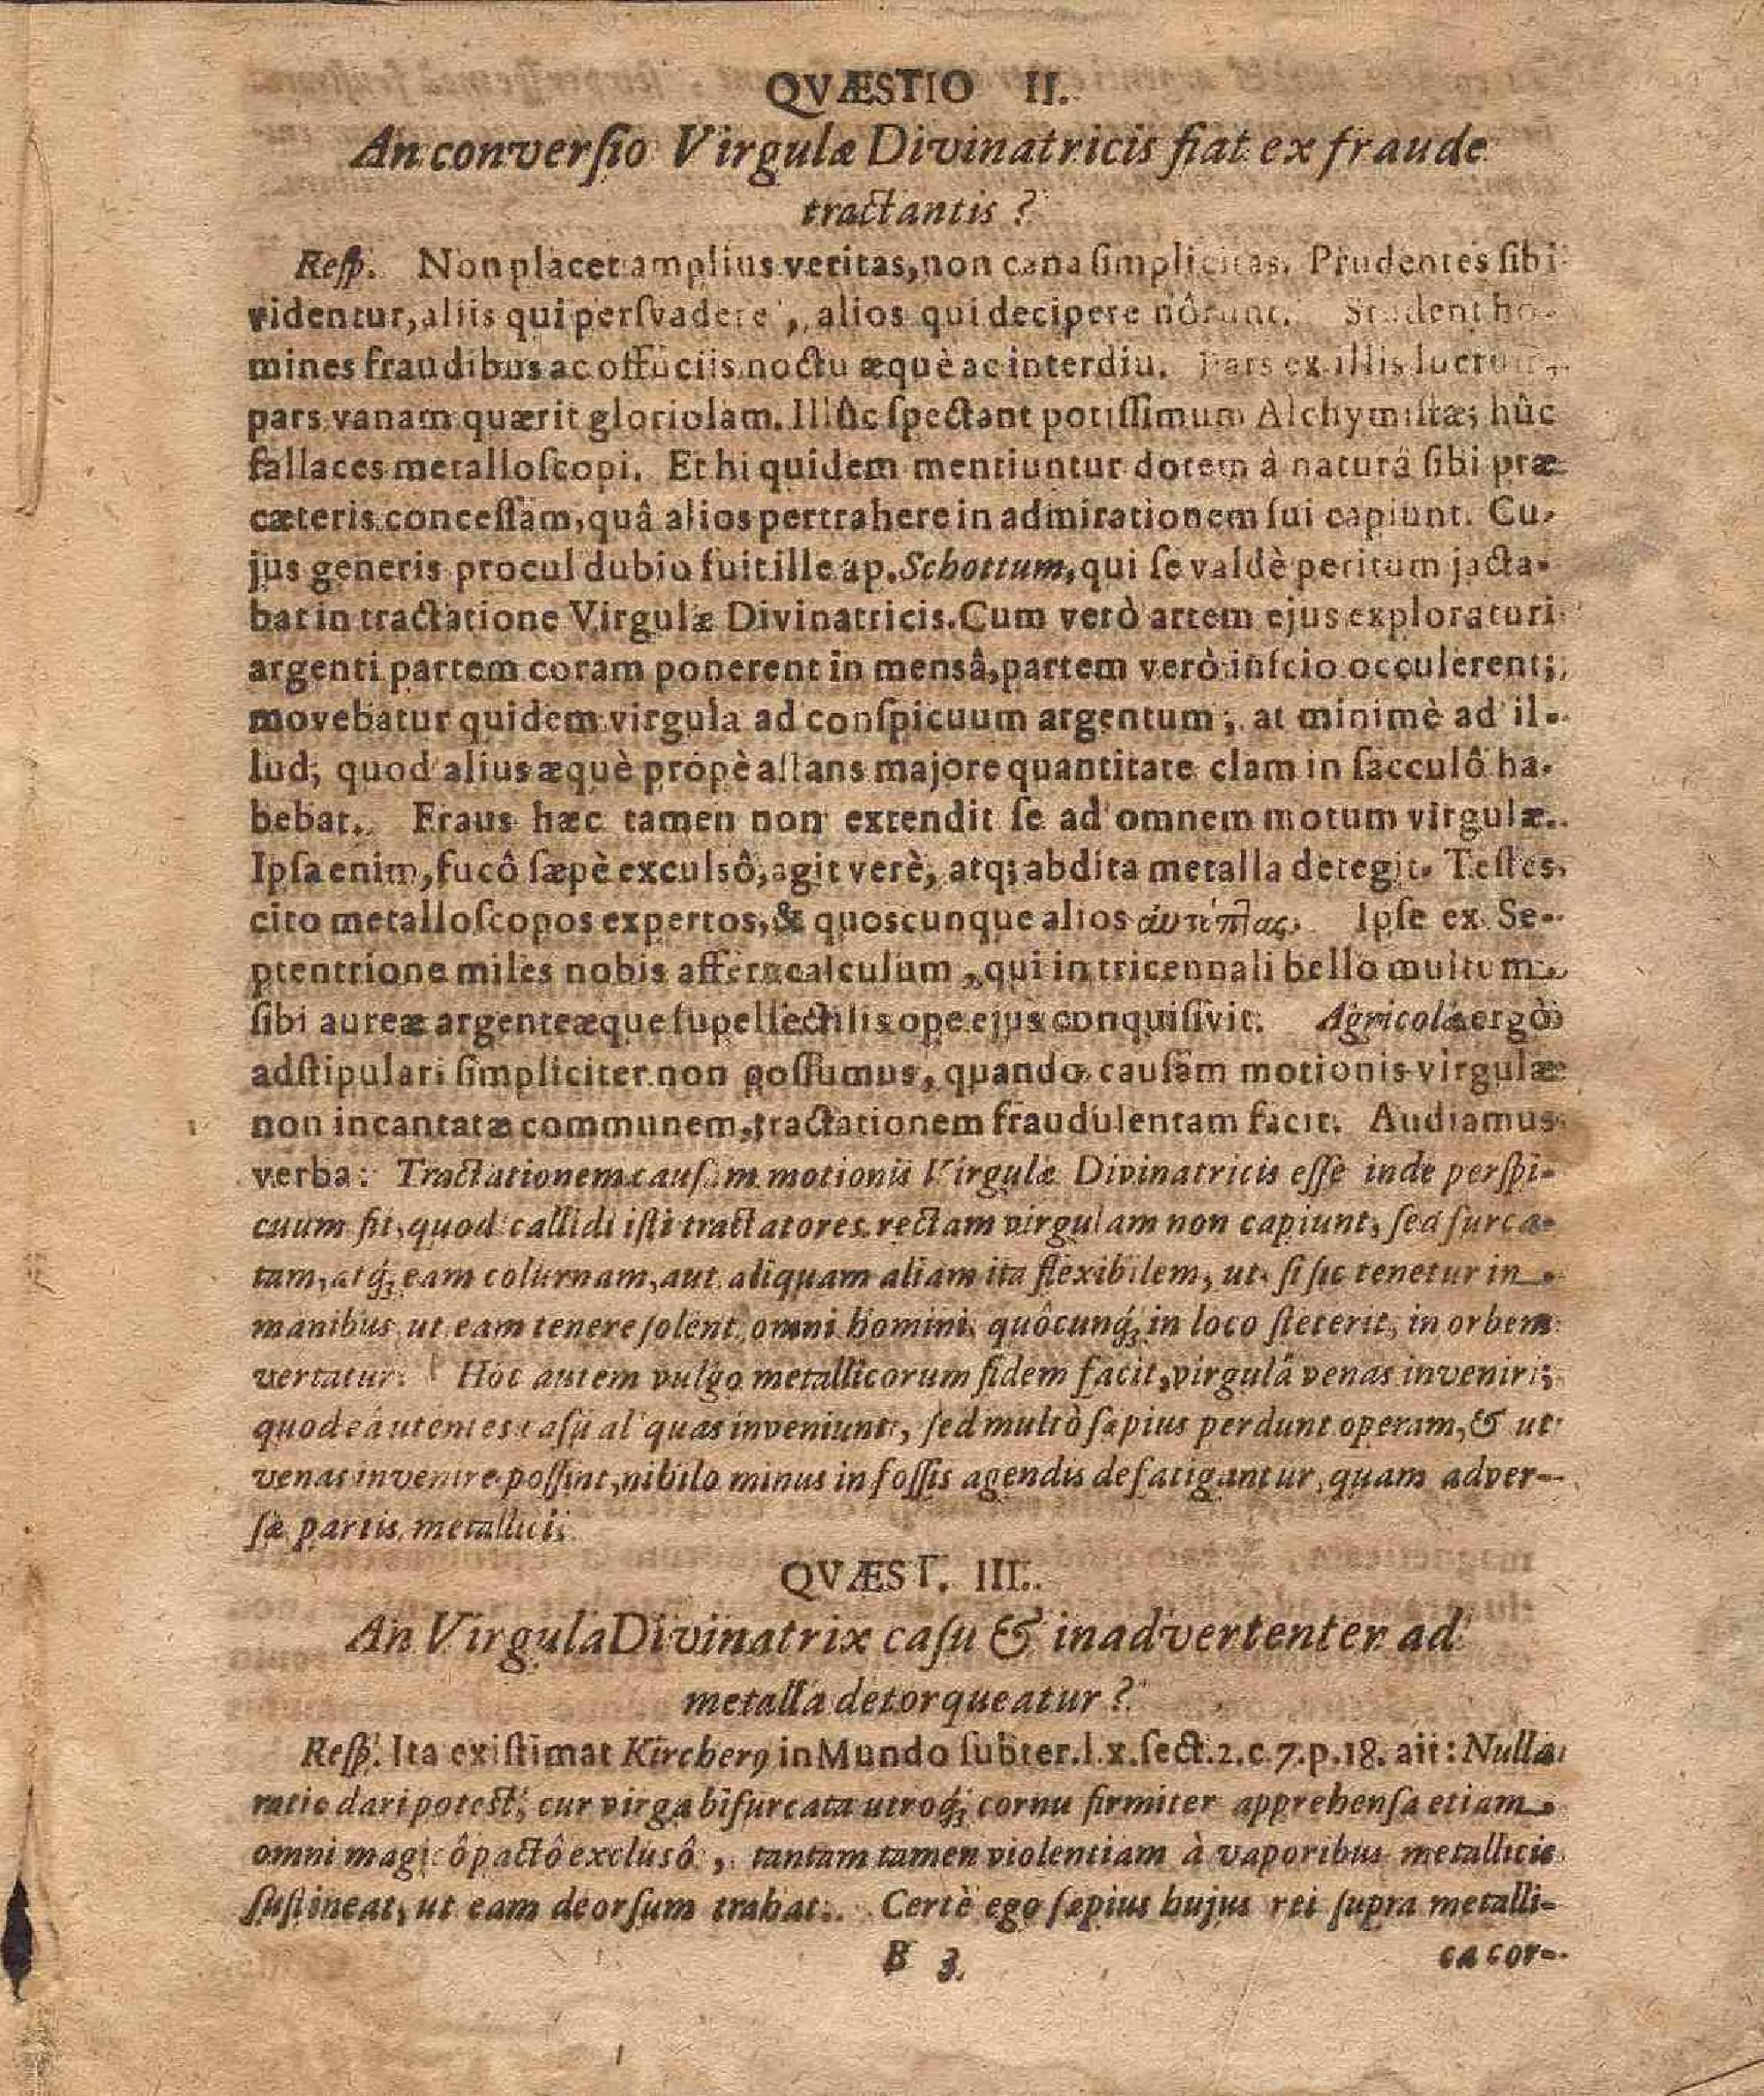 QVÆSTIO II.
An conversio Virgulæ Divinatricis fiat ex fraude
tractantis?
Resp. Non placet amplius veritas, non cana simplicitas. Prudentes sibi
videntur, aliis qui persvadere, alios qui decipere nôrunt. Student ho-
mines fraudibus ac offuciis noctu æquè ac interdiu. Pars ex illis lucrum,
pars vanam quærit gloriolam. Illûc spectant potissimum Alchymistæ; hûc
fallaces metalloscopi. Et hi quidem mentiuntur dotem à naturâ sibi præ
cæteris concessam, quâ alios pertrahere in admirationem sui capiunt. Cu-
jus generis procul dubio fuit ille ap. Schottum, qui se valdè peritum jacta-
bat in tractatione Virgulæ Divinatricis. Cum verò artem ejus exploraturi
argenti partem coram ponerent in mensâ, partem verò inscio occulerent;
movebatur quidem virgula ad conspicuum argentum, at minimè ad il-
lud, quod alius æquè propè astans majore quantitate clam in sacculô ha-
bebat. Fraus hæc tamen non extendit se ad omnem motum virgulæ.
Ipsa enim, fucô sæpè exculsô, agit verè, atq; abdita metalla detegit. Testes
cito metalloscopos expertos, & quoscunque alios Ipse ex Se-
ptentrione miles nobis affert calculum, qui in tricennali bello multum
sibi aureæ argenteæque supellectilis ope ejus conquisivit. Agricolæ ergò
adstipulari simpliciter non possumus, quando causam motionis virgulæ
non incantatæ communem, tractationem fraudulentam facit. Audiamus
verba: Tractationem causam motionis Virgulæ Divinatricis esse inde perspi-
cuum fit, quod callidi isti tractatores rectam virgulam non capiunt, sed furca-
tam, atq; eam colurnam, aut aliquam aliam ita flexibilem, ut si sic tenetur in
manibus, ut eam tenere solent, omni homini, quôcunq; in loco steterit, in orbem
vertatur. Hoc autem vulgo metallicorum fidem facit, virgulâ venas inveniri;
quod eâ utentes casu al'quas inveniunt, sed multò sæpius perdunt operam, & ut
venas invenire possint, nihilo minus in fossis agendis defatigantur, quam adver-
sæ partis metallici.
QVÆST. III.
An Virgula Divinatrix casu & inadvertenter ad
metalla detorqueatur?
Resp. Ita existimat Kircherq in Mundo subter. l. x. sect. 2. c. 7. p. 18. ait: Nulla
ratio dari potest, cur virga bifurcata utroq; cornu firmiter apprehensa etiam
omni magicô pactô exclusô, tantam tamen violentiam à vaporibus metallicis
sustineat, ut eam deorsum trahat. Certè ego sæpius hujus rei supra metalli-
B 3
ca cor-